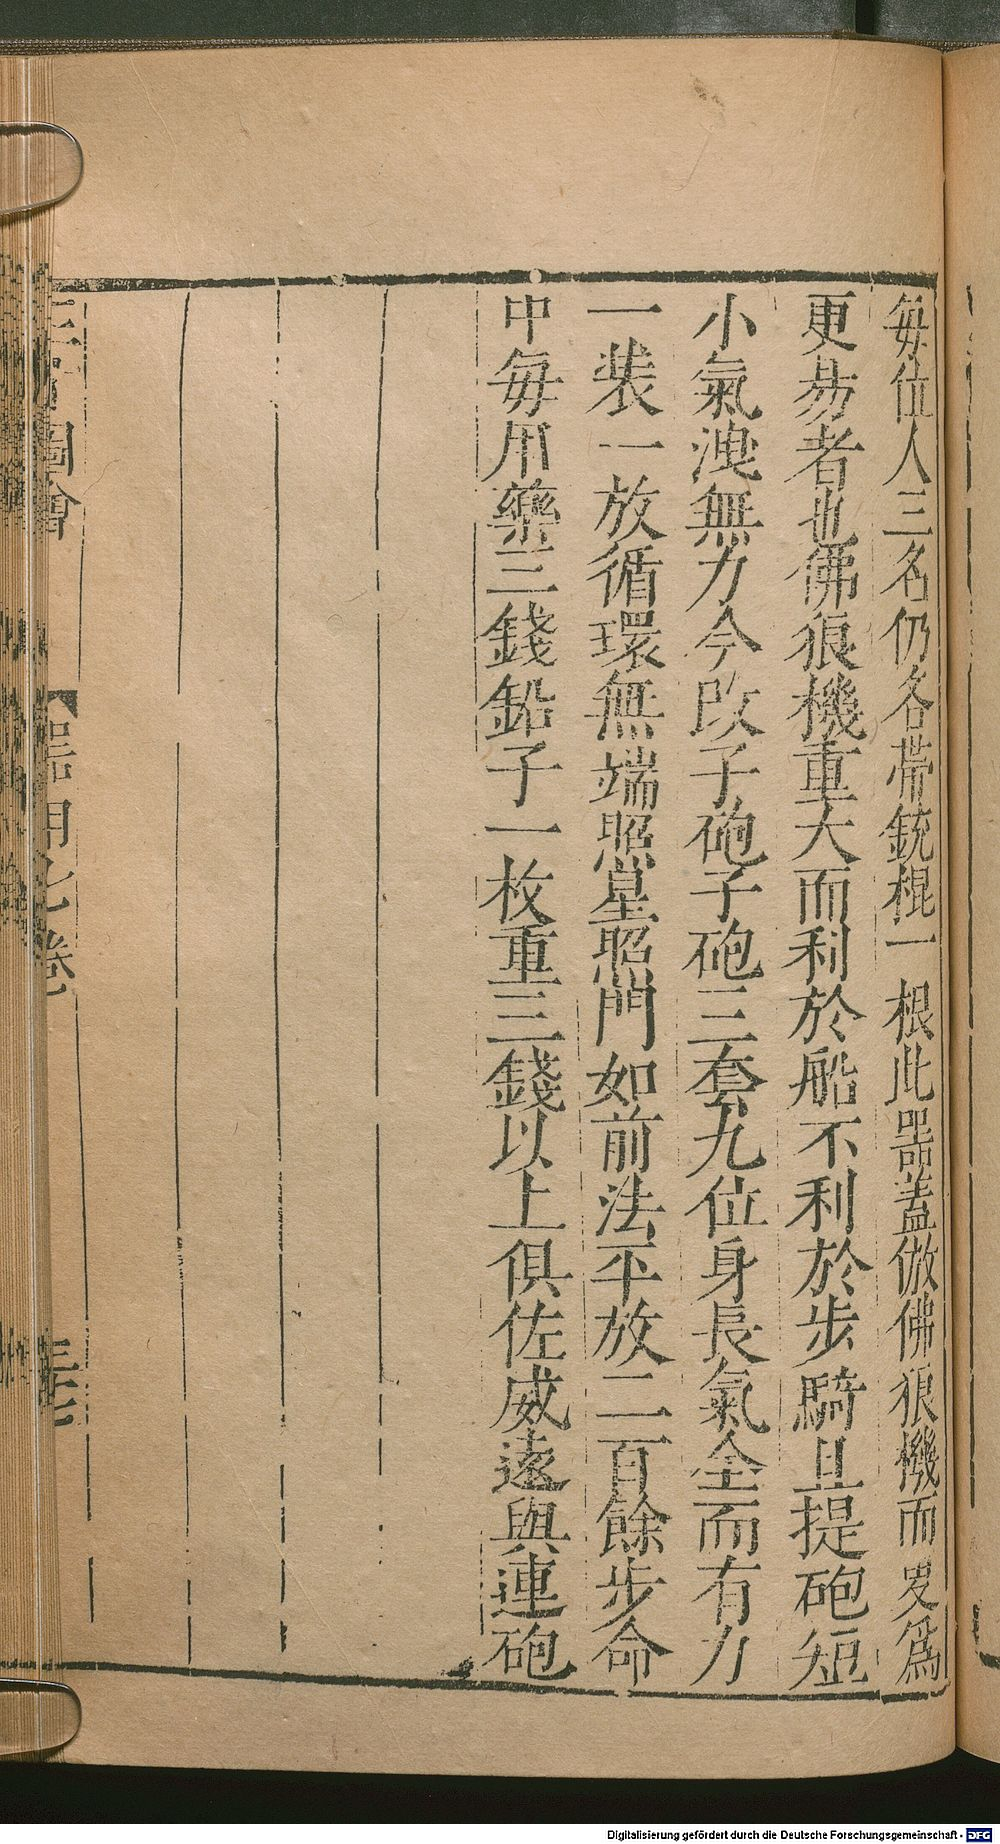 毎位人三名仍各帶銃棍一根此器蓋倣佛狼機而
更昜者也佛狼機重大而利於船不利於步騎且提砲短
小氣洩無力今改子砲子砲三套九位身長氣全而有力
一裝一放循環無端照星照門如前法平放二百餘步命
中毎用藥三錢鉛子一枚重三錢以上俱佐威遠與連砲
圖會
器用七卷
Digitalisierung gefördert durch die Deutsche Forschungsgemeinschaft - DFG